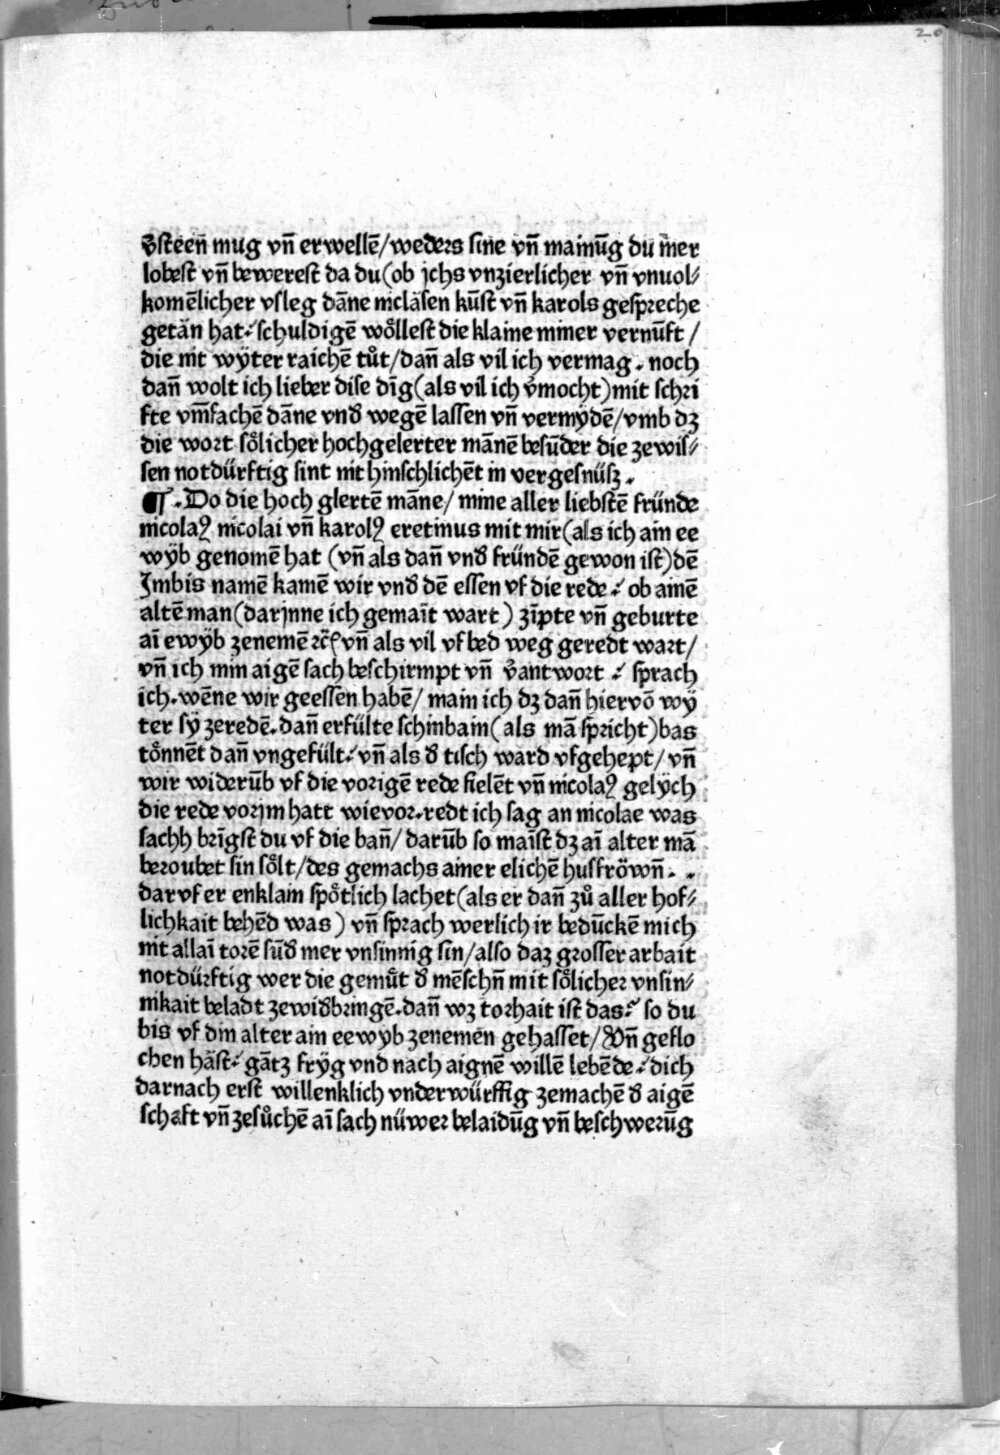 20
v̄steen̄ mug vn̄ erwellē/weders sine vn̄ mainūg du mer
lobest vn̄ bewerest da du(ob jchs vnzierlicher vn̄ vnuol⸗
komēlicher vsleg dāne niclāsen kūst vn̄ karols gespreche
getān hat⸝schuldigē woͤllest die klaine miner vernūft /
die nit wÿter raichē tuͦt/dan̄ als vil ich vermag . noch
dan̄ wolt ich lieber dise dīg(als vil ich v̄mocht)mit schri
fte vm̄fachē dāne vnd̄ wegē lassen vn̄ vermÿdē/vmb dz
die wort soͤlicher hochgelerter mānē besūder die zewis⸗
sen notdürftig sint nit hinschlichēt in vergesnüsz .
¶ .Do die hoch glertē māne/ mine aller liebstē fründe
nicolaꝯ nicolai vn̄ karolꝯ eretinus mit mir(als ich ain ee
wÿb genomē hat (vn̄ als dan̄ vnd̄ fründē gewon ist)dē
Jmbis namē kamē wir vnd̄ dē essen vf die rede⸝ ob ainē
altē man(darjnne ich gemaīt wart) zīpte vn̄ geburte
aī ewÿb zenemē ꝛc̄ vn̄ als vil vf bed weg geredt wart/
vn̄ ich min aigē sach beschirmpt vn̄ v̄antwort ⸝ sprach
ich.wēne wir geessen habē/ main ich dz dan̄ hiervō wÿ
ter sÿ zeredē.dan̄ erfülte schinbain(als mā spricht)bas
toͤnnēt dan̄ vngefült⸝vn̄ als d̄ tisch ward vfgehept/vn̄
wir widerūb vf die vorigē rede fielēt vn̄ nicolaꝯ gelÿch
die rede vorjm hatt wievor.redt ich sag an nicolae was
sachh brīgst du vf die ban̄/ darūb so maīst dz aī alter mā
beroubet sin soͤlt/des gemachs ainer elichē husfröwn̄ .
darvf er enklain spoͤtlich lachet(als er dan̄ zuͦ aller hof⸗
lichkait behēd was) vn̄ sprach werlich ir bedūckē mich
nit allaī torē sūd̄ mer vnsinnig sin/also daz grosser arbait
notdürftig wer die gemuͤt d̄ mēschn̄ mit soͤlicher vnsin⸗
nikait beladt zewid̄bringē.dan̄ wz torhait ist das⸝ so du
bis vf din alter ain eewyb zenemen gehasset/Vn̄ geflo
chen hāst⸝gātz frÿg vnd nach aignē willē lebēde⸝dich
darnach erst willenklich vnderwürffig zemachē d̄ aigē
schaft vn̄ zesuͦchē aī sach nüwer belaidūg vn̄ beschwerūg